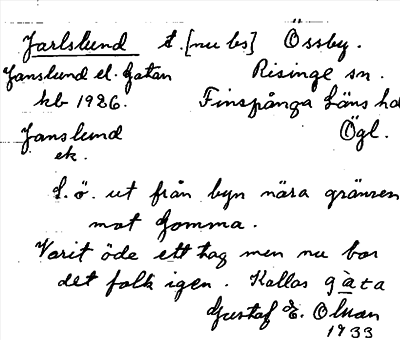 Jarlslund t. [nu bs] Össby.
Janslund el. Gatan Risinge sn.
kb 1926. Finspånga läns hd
Janslund Ögl.
ek.
L. ö. ut från byn nära gränsen
mot Gomma.
Varit öde ett tag men nu bor
det folk igen. Kallas gàta
Gustaf E. Olson
1933